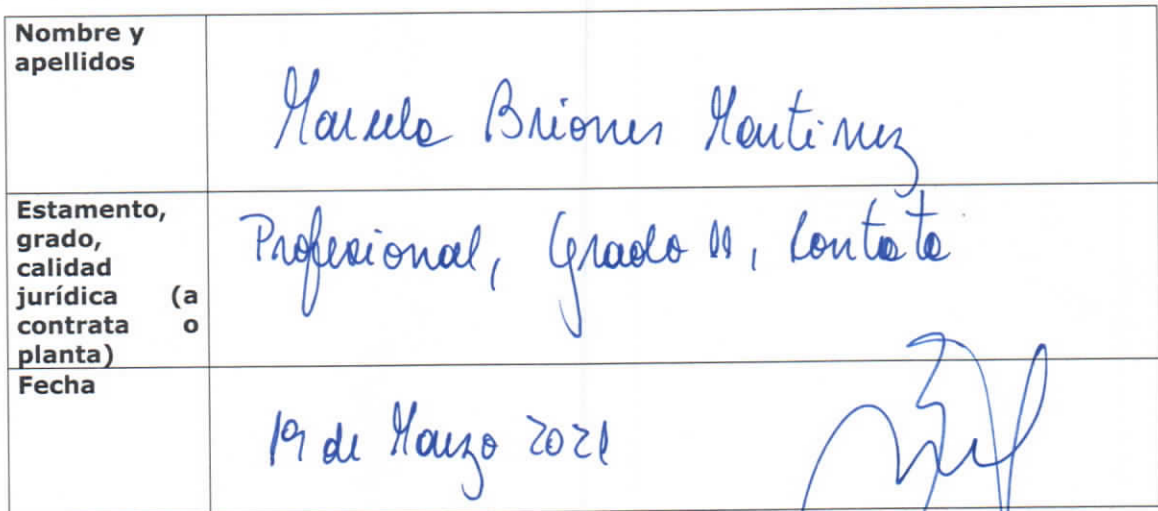 Nombre y
apellidos
Marcela Briones Martinez
Estamento,
grado,
calidad
jurídica (a
contrata o
planta)
Profesional, Grado 11, Contata
Fecha
19 de Marzo 2021